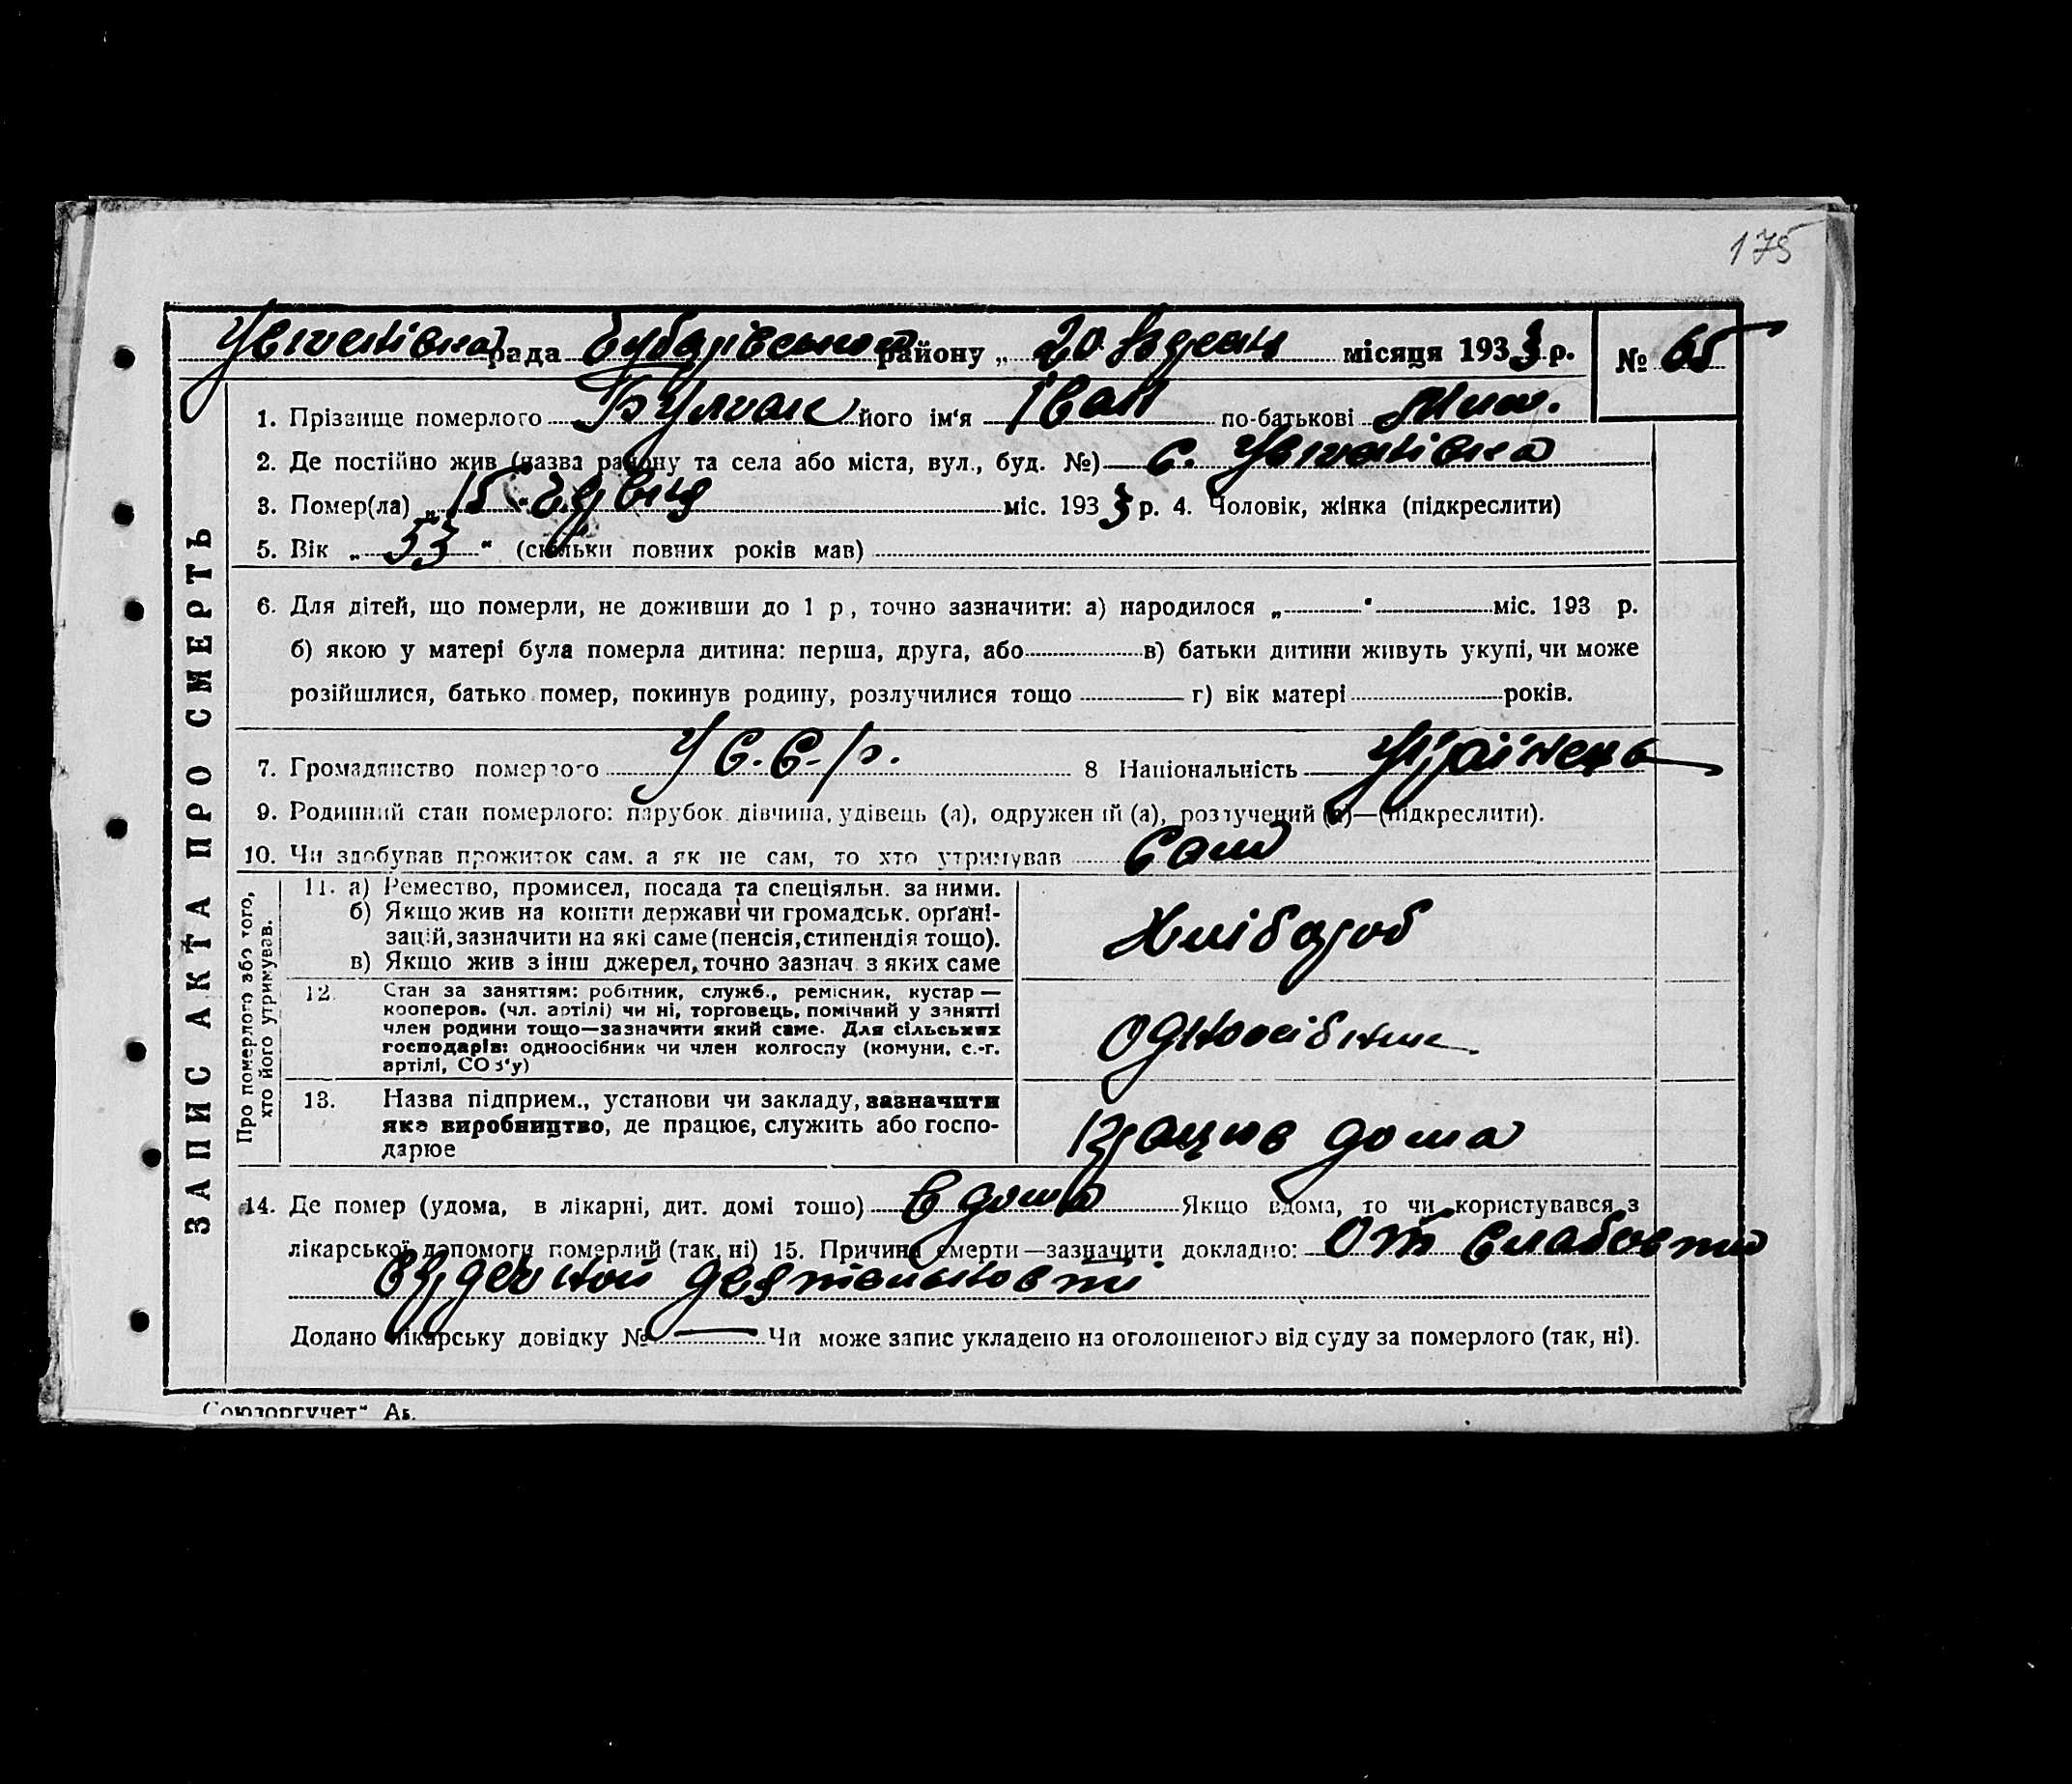 175
рада району „ 20 місяця 1933 р. № 65
1. Прізвище померлого його ім'я Іван по-батькові
2. Де постійно жив (назва району та села або міста, вул., буд. №) с.
3. Помер(ла) „ 15 " міс. 1933 р. 4. Чоловік, жінка (підкреслити)
5. Вік „ 53 " (скільки повних років мав)
6. Для дітей, що померли, не доживши до 1 р., точно зазначити: а) народилося „ " міс. 193 р.
б) якою у матері була померла дитина: перша, друга, або в) батьки дитини живуть укупі, чи може
розійшлися, батько помер, покинув родину, розлучилися тощо г) вік матері років.
7. Громадянство померлого У С.С.р. 8 Національність Українець
9. Родинний стан померлого: парубок дівчина, удівець (а), одружений (а), розлучений (а)—(підкреслити).
10. Чи здобував прожиток сам. а як не сам, то хто утримував Сам
ЗАПИС АКТА ПРО СМЕРТЬ
Про померлого або того,
хто його утримував.
11. а) Ремество, промисел, посада та спеціяльн. за ними.
б) Якщо жив на кошти держави чи громадськ. орґані-
зацій, зазначити на які саме (пенсія, стипендія тощо).
в) Якщо жив з інш джерел, точно зазнач. з яких саме
Хлібороб
12. Стан за заняттям: робітник, служб., ремісник, кустар —
кооперов. (чл. артілі) чи ні, торговець, помічний у занятті
член родини тощо—зазначити який саме. Для сільських
господарів: одноосібник чи член колгоспу (комуни, с.-г.
артілі, СОЗ'у)
Одноосібник
13. Назва підприєм., установи чи закладу, зазначити
яке виробництво, де працює, служить або госпо-
дарює
Працюв дома
14. Де помер (удома, в лікарні, дит. домі тощо) в дома Якщо вдома, то чи користувався з
лікарської допомоги померлий (так, ні) 15. Причина смерти—зазначити докладно: От слабости
сердечной деятельности.
Додано лікарську довідку № — Чи може запис укладено на оголошеного від суду за померлого (так, ні).
„Союзоргучет"